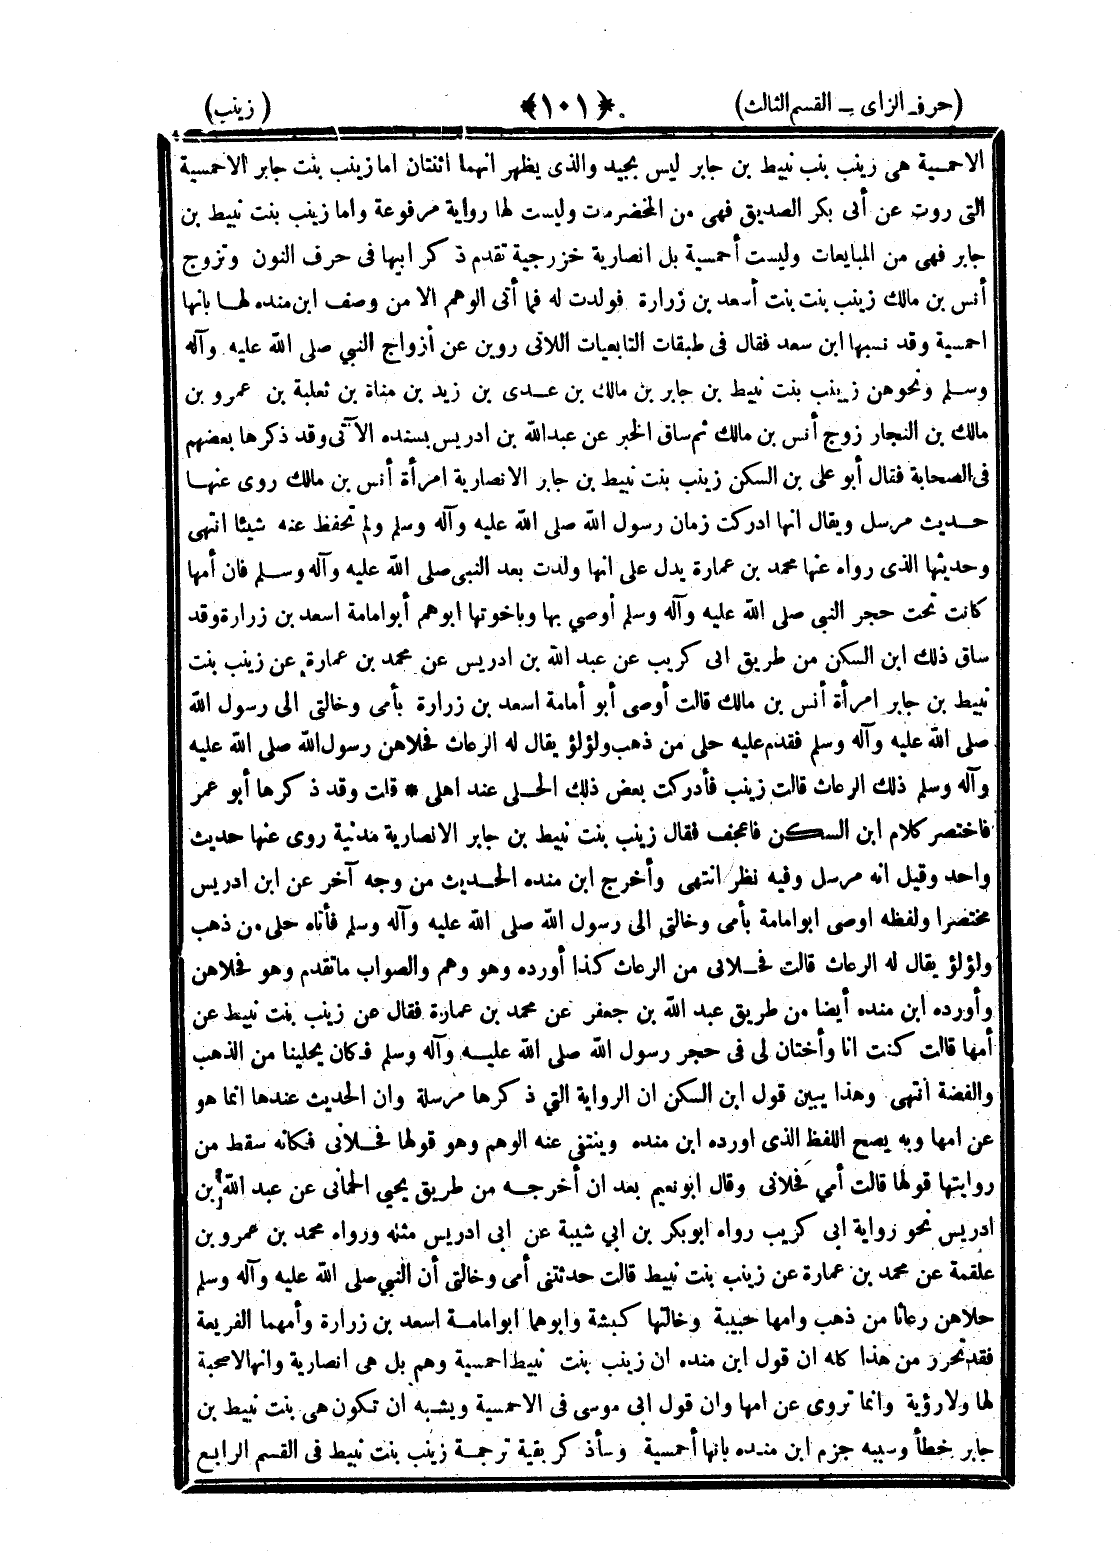 (حرف الزاى - القسم الثالث) ﴿١٠١﴾ (زينب)
الاحمسية هى زينب بنب نبيط بن جابر ليس بجيد والذى يظهر انهما اثنتان اما زينب بنت جابر الاحمسية
التى روت عن أبى بكر الصديق فهى من المخضرمات وليست لها رواية مرفوعة واما زينب بنت نبيط بن
جابر فهى من المبايعات وليست أحمسية بل انصارية خزرجية تقدم ذكر ابيها فى حرف النون وتزوج
أنس بن مالك زينب بنت بنت أسعد بن زرارة فولدت له فما أتى الوهم الا من وصف ابن منده لها بانها
احمسية وقد نسبها ابن سعد فقال فى طبقات التابعيات اللاتى روين عن أزواج النبي صلى الله عليه وآله
وسلم ونحوهن زينب بنت نبيط بن جابر بن مالك بن عدى بن زيد بن مناة بن ثعلبة بن عمرو بن
مالك بن النجار زوج أنس بن مالك ثم ساق الخبر عن عبدالله بن ادريس بسنده الآتى وقد ذكرها بعضهم
فى الصحابة فقال أبو على بن السكن زينب بنت نبيط بن جابر الانصارية امرأة أنس بن مالك روى عنها
حديث مرسل ويقال انها ادركت زمان رسول الله صلى الله عليه وآله وسلم ولم تحفظ عنه شيئا انتهى
وحديثها الذى رواه عنها محمد بن عمارة يدل على انها ولدت بعد النبى صلى الله عليه وآله وسلم فان أمها
كانت تحت حجر النبي صلى الله عليه وآله وسلم أوصي بها وباخوتها ابوهم أبوامامة اسعد بن زرارة وقد
ساق ذلك ابن السكن من طريق ابى كريب عن عبد الله بن ادريس عن محمد بن عمارة عن زينب بنت
نبيط بن جابر امرأة أنس بن مالك قالت أوصى أبو أمامة اسعد بن زرارة بأمى وخالتى الى رسول الله
صلى الله عليه وآله وسلم فقدم عليه حلى من ذهب ولؤلؤ يقال له الرعاث فحلاهن رسول الله صلى الله عليه
وآله وسلم ذلك الرعاث قالت زينب فأدركت بعض ذلك الحلى عند اهلى * قلت وقد ذكرها أبو عمر
فاختصر كلام ابن السكن فاعجف فقال زينب بنت نبيط بن جابر الانصارية مدنية روى عنها حديث
واحد وقيل انه مرسل وفيه نظر انتهى وأخرج ابن منده الحديث من وجه آخر عن ابن ادريس
مختصرا ولفظه اوصى ابوامامة بأمى وخالتى الى رسول الله صلى الله عليه وآله وسلم فأتاه حلى من ذهب
ولؤلؤ يقال له الرعاث قالت فحلانى من الرعاث كذا أورده وهو وهم والصواب ماتقدم وهو فحلاهن
وأورده ابن منده أيضا من طريق عبد الله بن جعفر عن محمد بن عمارة فقال عن زينب بنت نبيط عن
أمها قالت كنت انا وأختان لى فى حجر رسول الله صلى الله عليه وآله وسلم فكان يحلينا من الذهب
والفضة انتهى وهذا يبين قول ابن السكن ان الرواية التي ذكرها مرسلة وان الحديث عندها انما هو
عن امها وبه يصح اللفظ الذى اورده ابن منده وينتفى عنه الوهم وهو قولها فحلانى فكانه سقط من
روايتها قولها قالت أمي فحلانى وقال ابونعيم بعد ان أخرجه من طريق يحيي الحمانى عن عبد الله بن
ادريس نحو رواية ابى كريب رواه ابوبكر بن ابي شيبة عن ابى ادريس مثله ورواه محمد بن عمرو بن
علقمة عن محمد بن عمارة عن زينب بنت نبيط قالت حدثتنى أمى وخالتى أن النبي صلى الله عليه وآله وسلم
حلاهن رعاثا من ذهب وامها حبيبة وخالتها كبشة وابوهما ابوامامة اسعد بن زرارة وأمهما الفريعة
فقد تحرر من هذا كله ان قول ابن منده ان زينب بنت نبيط احمسية وهم بل هى انصارية وانها لاصحبة
لها ولارؤية وانما تروى عن امها وان قول ابى موسى فى الاحمسية ويشبه ان تكون هى بنت نبيط بن
جابر خطأ وسببه جزم ابن منده بانها أحمسية وسأذكر بقية ترجمة زينب بنت نبيط فى القسم الرابع